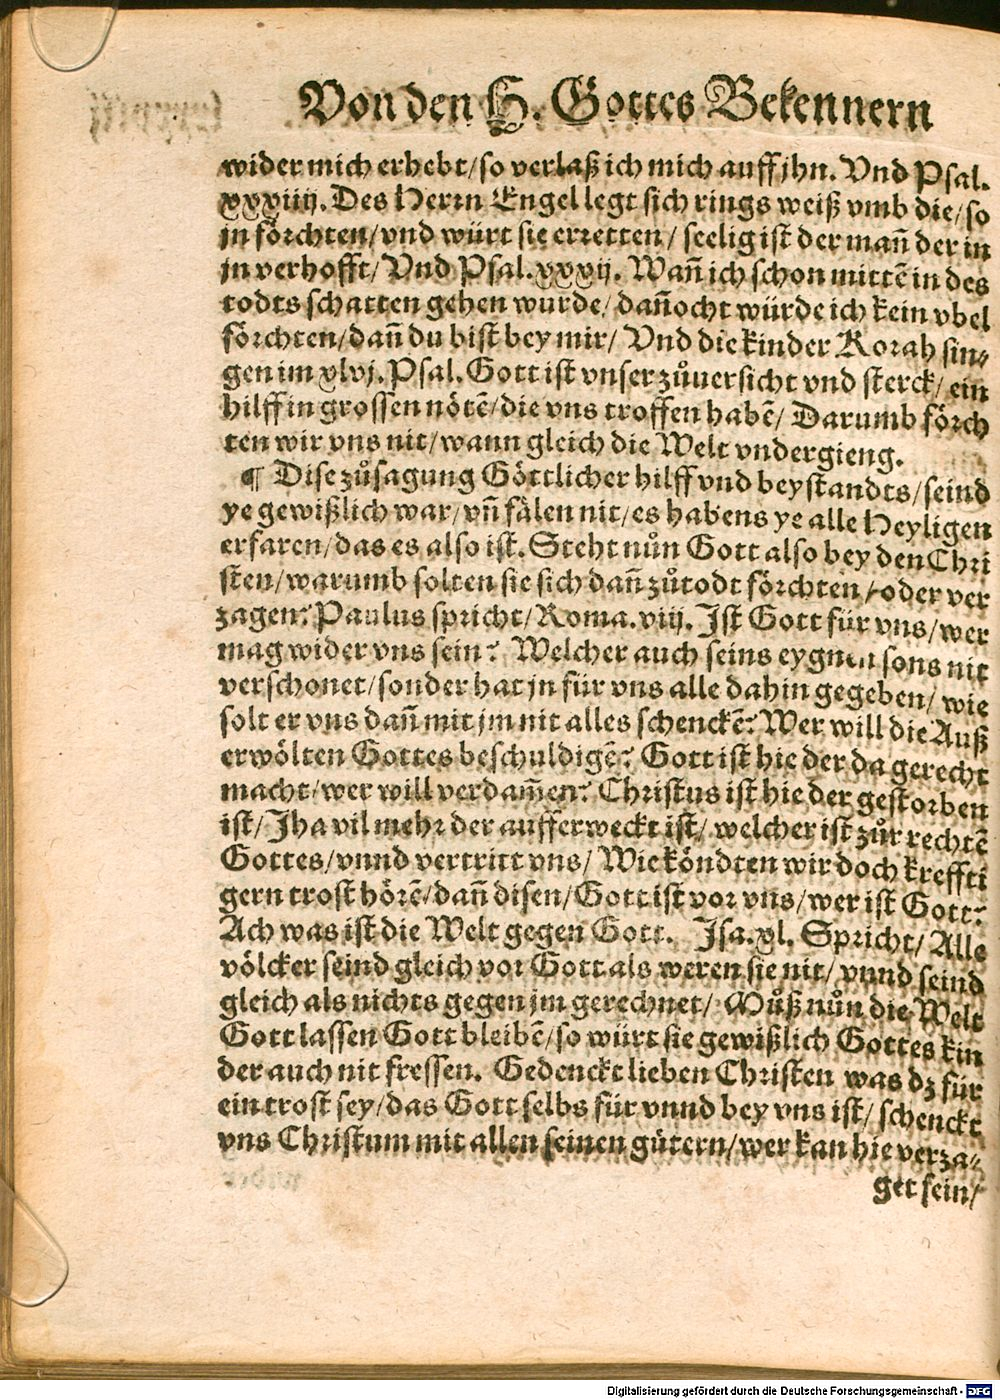 Von den H. Gottes Bekennern
wider mich erhebt/so verlaß ich mich auff jhn. Vnd Psal.
xxxiiij. Des Herrn Engel legt sich rings weiß vmb die/so
jn förchten/vnd würt sie erretten/ seelig ist der mañ der in
jn verhofft/ Vnd Psal. xxxij. Wañ ich schon mittẽ in des
todts schatten gehen wurde/ dañocht würde ich kein vbel
förchten/dañ du bist bey mir/ Vnd die kinder Korah sin⸗
gen im xlvj. Psal. Gott ist vnser zůuersicht vnd sterck/ ein
hilff in grossen nötẽ/die vns troffen habẽ/ Darumb förch
ten wir vns nit/wann gleich die Welt vndergieng.
¶ Dise zůsagung Göttlicher hilff vnd beystandts/seind
ye gewißlich war/vñ fälen nit/es habens ye alle Heyligen
erfaren/das es also ist. Steht nůn Gott also bey den Chri
sten/warumb solten sie sich dañ zůtodt förchten/oder ver
zagen? Paulus spricht/Roma. viij. Ist Gott für vns/wer
mag wider vns sein? Welcher auch seins eygnen sons nit
verschonet/sonder hat jn für vns alle dahin gegeben/ wie
solt er vns dañ mit jm nit alles schenckẽ? Wer will die Auß
erwölten Gottes beschuldigẽ? Gott ist hie der da gerecht
macht/wer will verdam̃en? Christus ist hie der gestorben
ist/ Jha vil mehr der aufferweckt ist/ welcher ist zůr rechtẽ
Gottes/vnnd vertritt vns/ Wie köndten wir doch kreffti
gern trost hörẽ/dañ disen/Gott ist vor vns/wer ist Gott?
Ach was ist die Welt gegen Gott. Isa. xl. Spricht/ Alle
völcker seind gleich vor Gott als weren sie nit/ vnnd seind
gleich als nichts gegen jm gerechnet/ Můß nůn die Welt
Gott lassen Gott bleibẽ/so würt sie gewißlich Gottes kin
der auch nit fressen. Gedenckt lieben Christen was dz für
ein trost sey/das Gott selbs für vnnd bey vns ist/ schenckt
vns Christum mit allen seinen gütern/wer kan hie verza⸗
get sein/
Digitalisierung gefördert durch die Deutsche Forschungsgemeinschaft - DFG